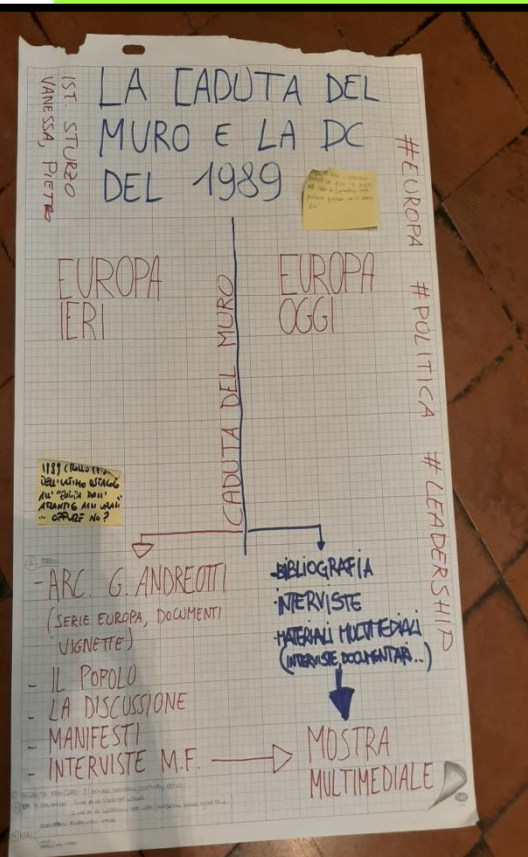 IST. STURZO
VANESSA, PIETRO
LA CADUTA DEL
MURO E LA DC
DEL 1989
#EUROPA #POLITICA #LEADERSHIP
EUROPA
IERI
EUROPA
OGGI
CADUTA DEL MURO
1989 CROLLO
DELL'ULTIMO OSTACOLO
ATLANTICO AGLI URALI"
... OPPURE NO?
- ARC. G. ANDREOTTI
(SERIE EUROPA, DOCUMENTI
VIGNETTE)
- IL POPOLO
- LA DISCUSSIONE
- MANIFESTI
- INTERVISTE M.F.
-BIBLIOGRAFIA
-INTERVISTE
-MATERIALI MULTIMEDIALI
(INTERVISTE, DOCUMENTARI...)
MOSTRA
MULTIMEDIALE